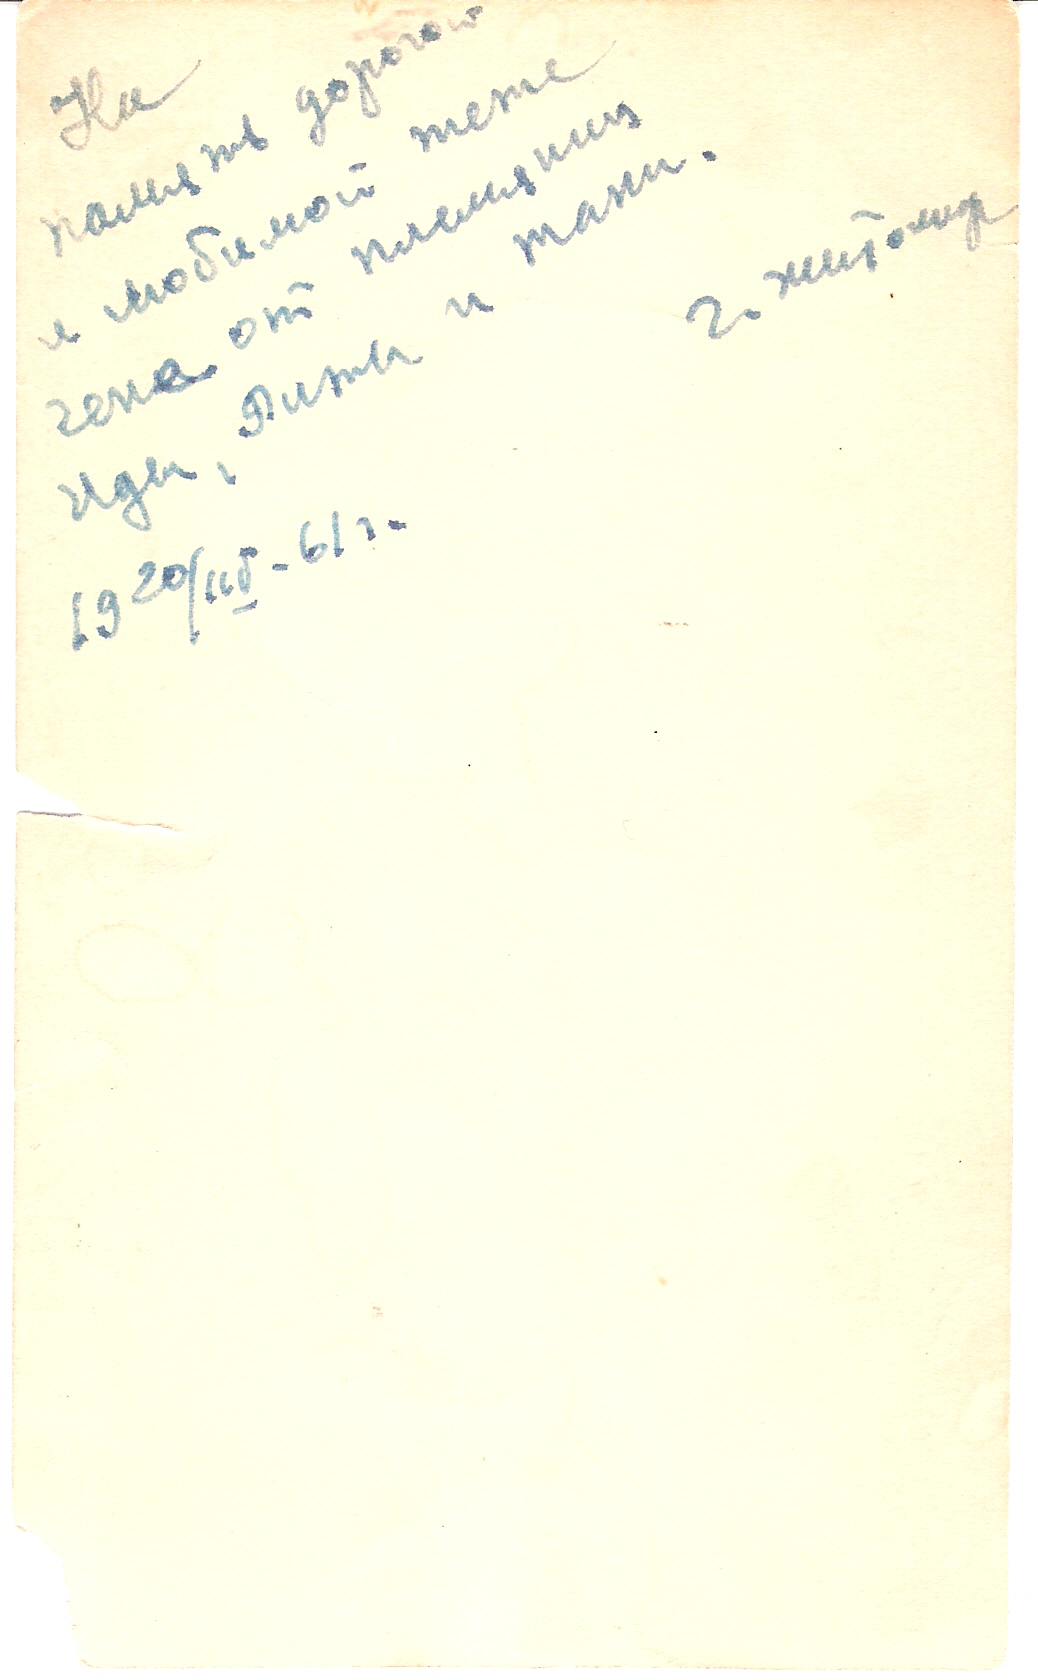 На
память дорогой
и любимой тете
гене от племяниц
Иды, Риты и тани.
г. житомир
19 20/IIV-61 г.